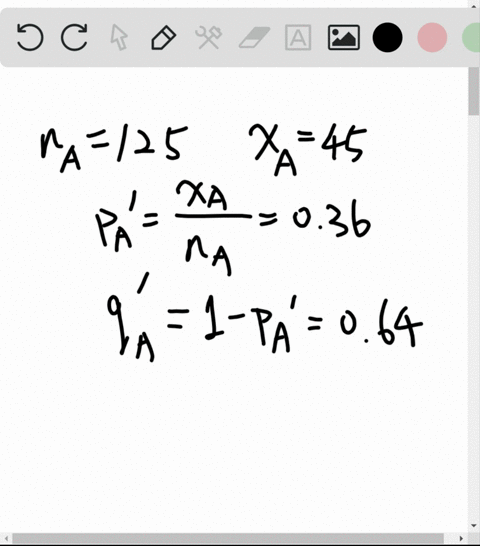 n_A = 125 x_A = 45
p_A' = x_A / n_A = 0.36
q_A' = 1 - p_A' = 0.64